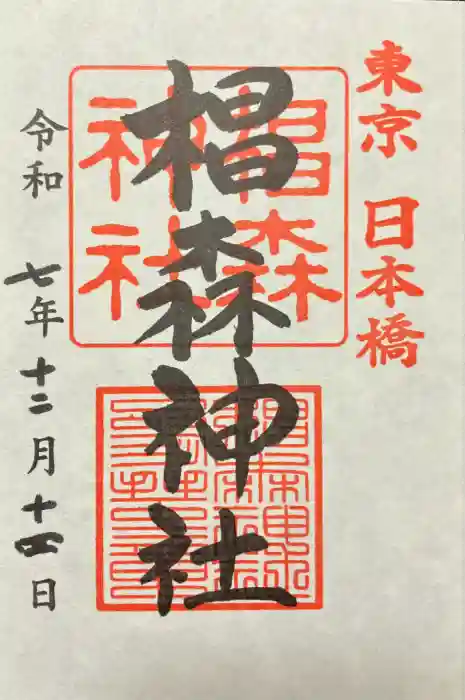 東京 日本橋
椙森神社
椙森
神社
令和 七年 十二月 十四日